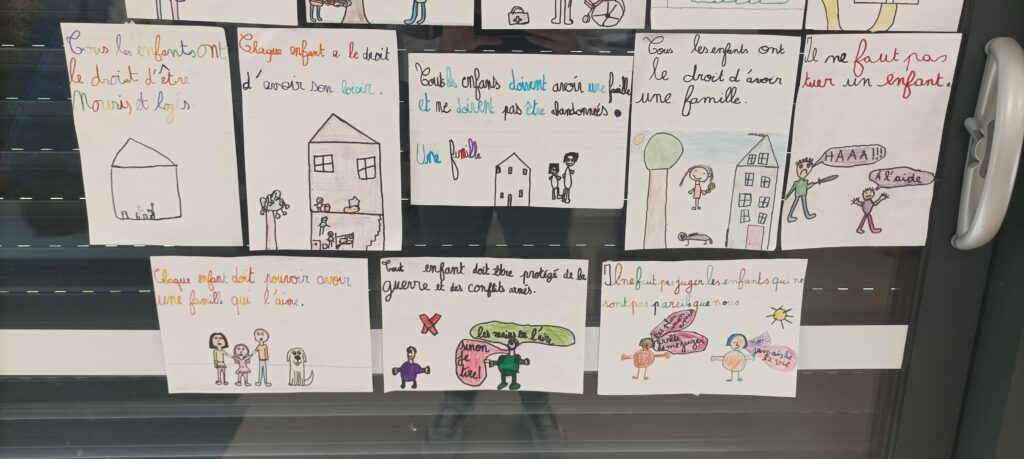 Tous les enfants ont
le droit d'être
Nouris et logés.
Chaque enfant a le droit
d'avoir son loisir.
Tous les enfants doivent avoir une famille
et ne doivent pas être abandonnés.
Une famille
Tous les enfants ont
le droit d'avoir
une famille.
Il ne faut pas
tuer un enfant.
HAAA!!!
A l'aide
Chaque enfant doit pouvoir avoir
une famille qui l'aime.
Tout enfant doit être protégé de la
guerre et des conflits armés.
les mains en l'aire
sinon
je
tire!
Il ne faut pas juger les enfants qui ne
sont pas pareils que nous
arrête
de me juger
non
jamais de
la vie